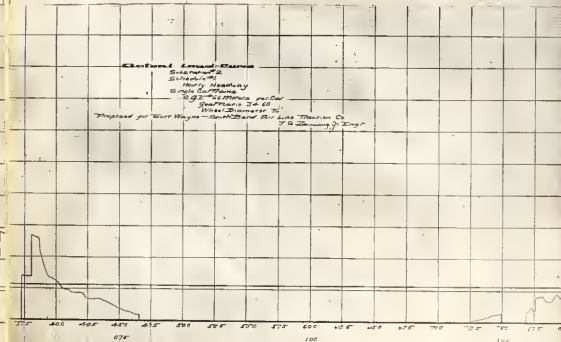 Actual Load-Curve
Substation #2
Schedule #1
Hourly Headway
Single Car Trains
2 G.E. #66 Motors per Car
Gear Ratio 34-60
Wheel Diameter
Proposed for Fort Wayne-South Bend Air Line Traction Co
Engr
37.5 40.0 42.5 45.0 47.5 50.0 52.5 55.0 57.5 60.0 62.5 65.0 67.5 70.0 72.5 75. 77.5
075 100